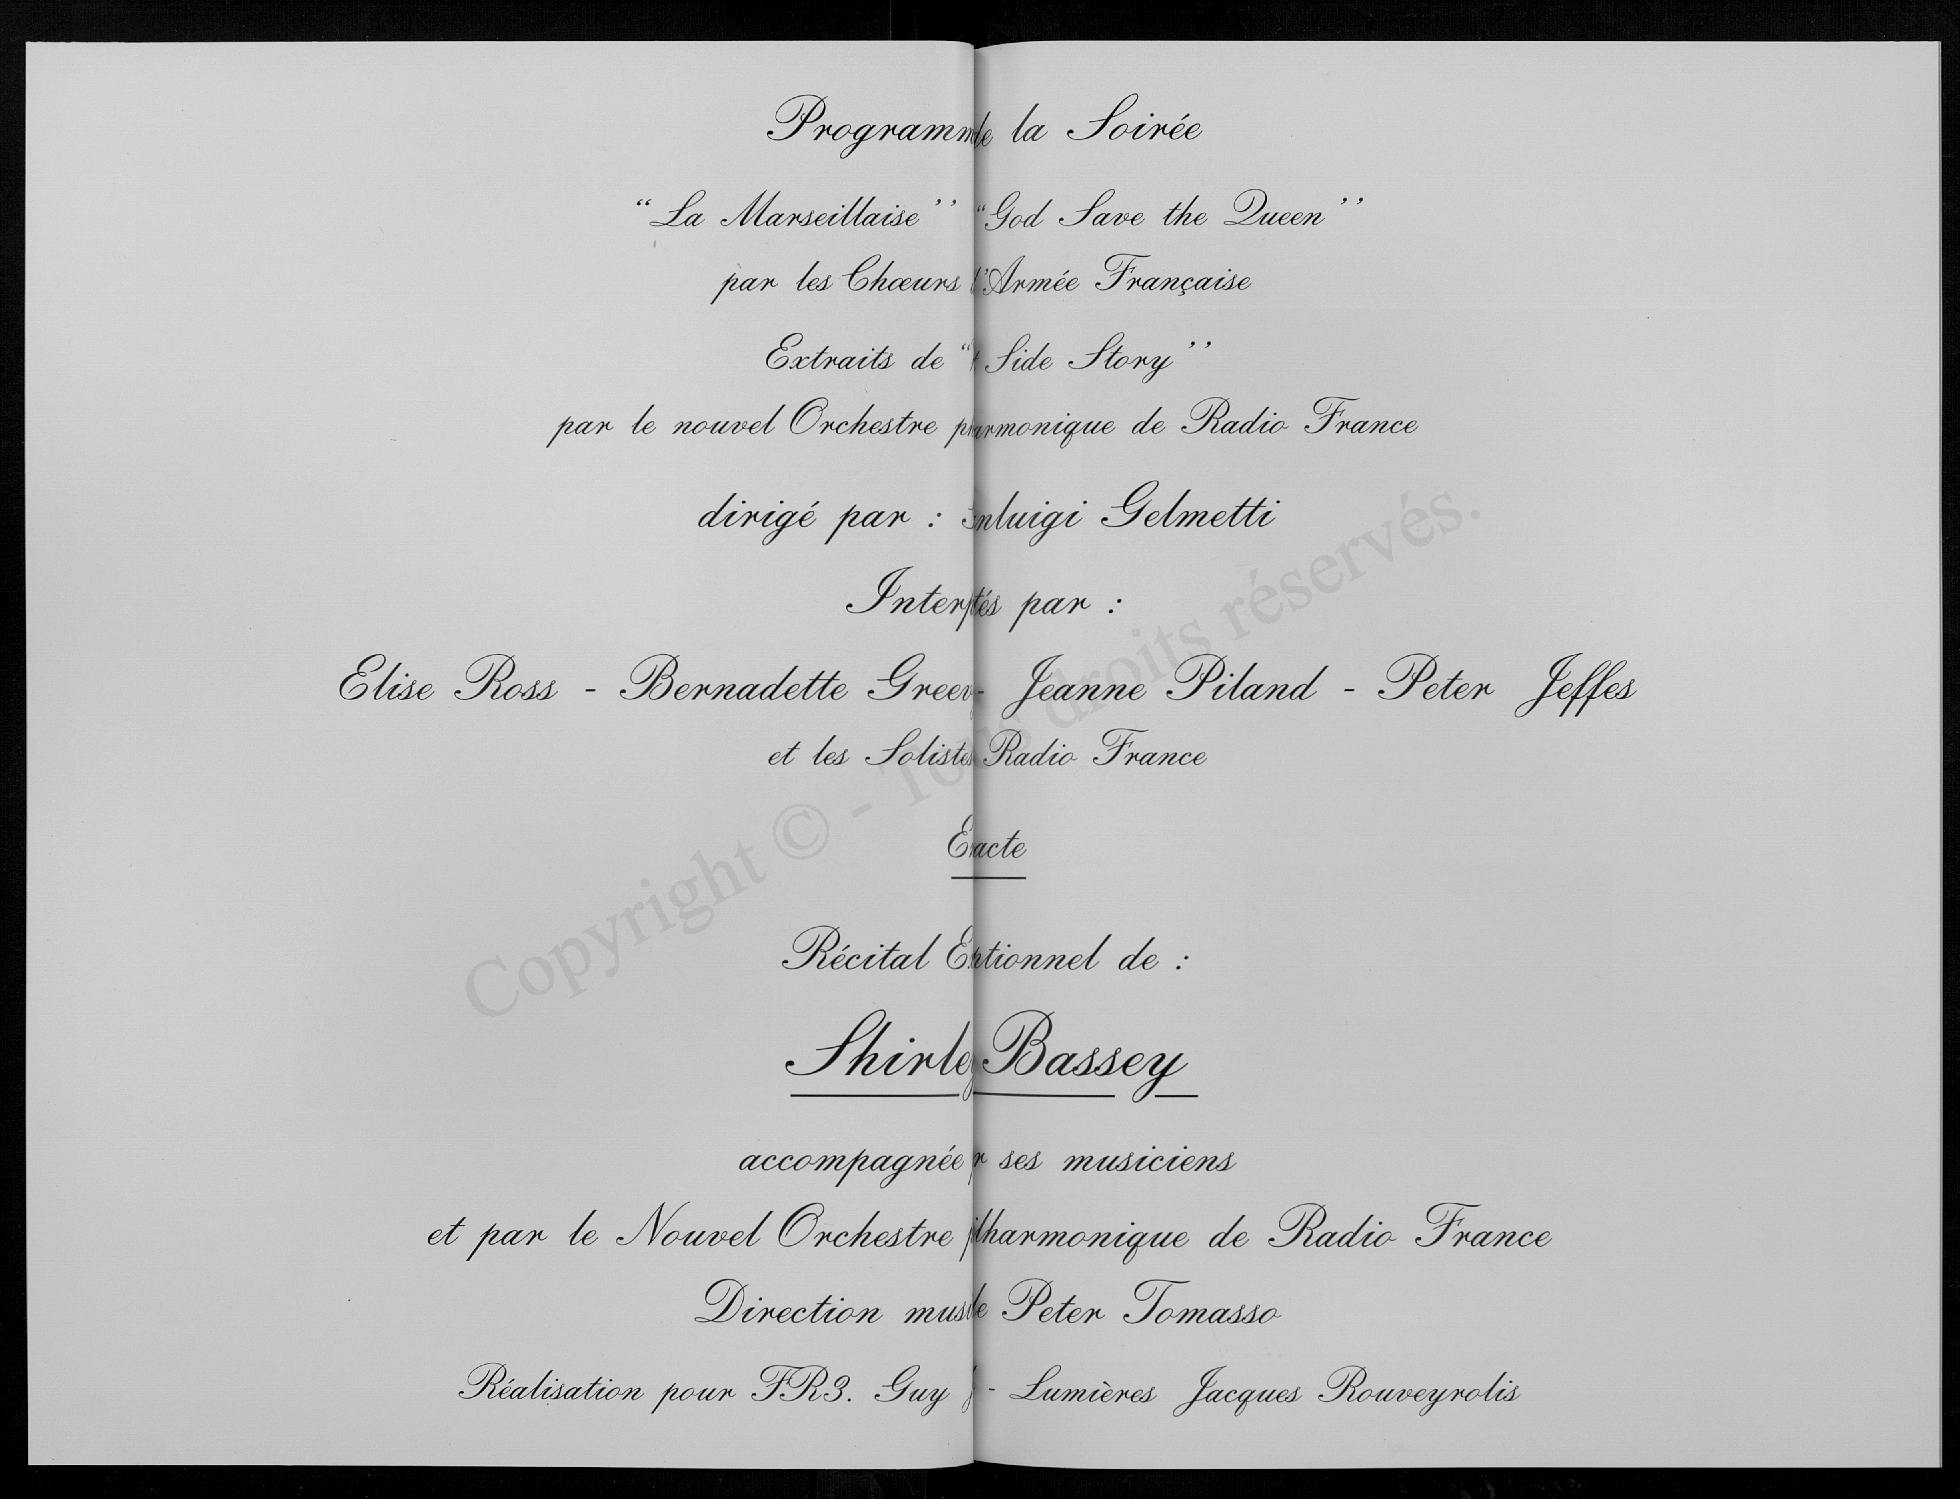 Programme de la Soirée
"La Marseillaise" "God Save the Queen"
par les Chœurs l'Armée Française
Extraits de " Side Story"
par le nouvel Orchestre philharmonique de Radio France
dirigé par : Gianluigi Gelmetti
Interprétés par :
Elise Ross - Bernadette Greevy - Jeanne Piland - Peter Jeffes
et les Solistes Radio France
Entracte
Récital Exceptionnel de :
Shirley Bassey
accompagnée par ses musiciens
et par le Nouvel Orchestre philharmonique de Radio France
Direction musicale Peter Tomasso
Réalisation pour FR3. Guy - Lumières Jacques Rouveyrolis
Copyright © - Tous droits réservés.